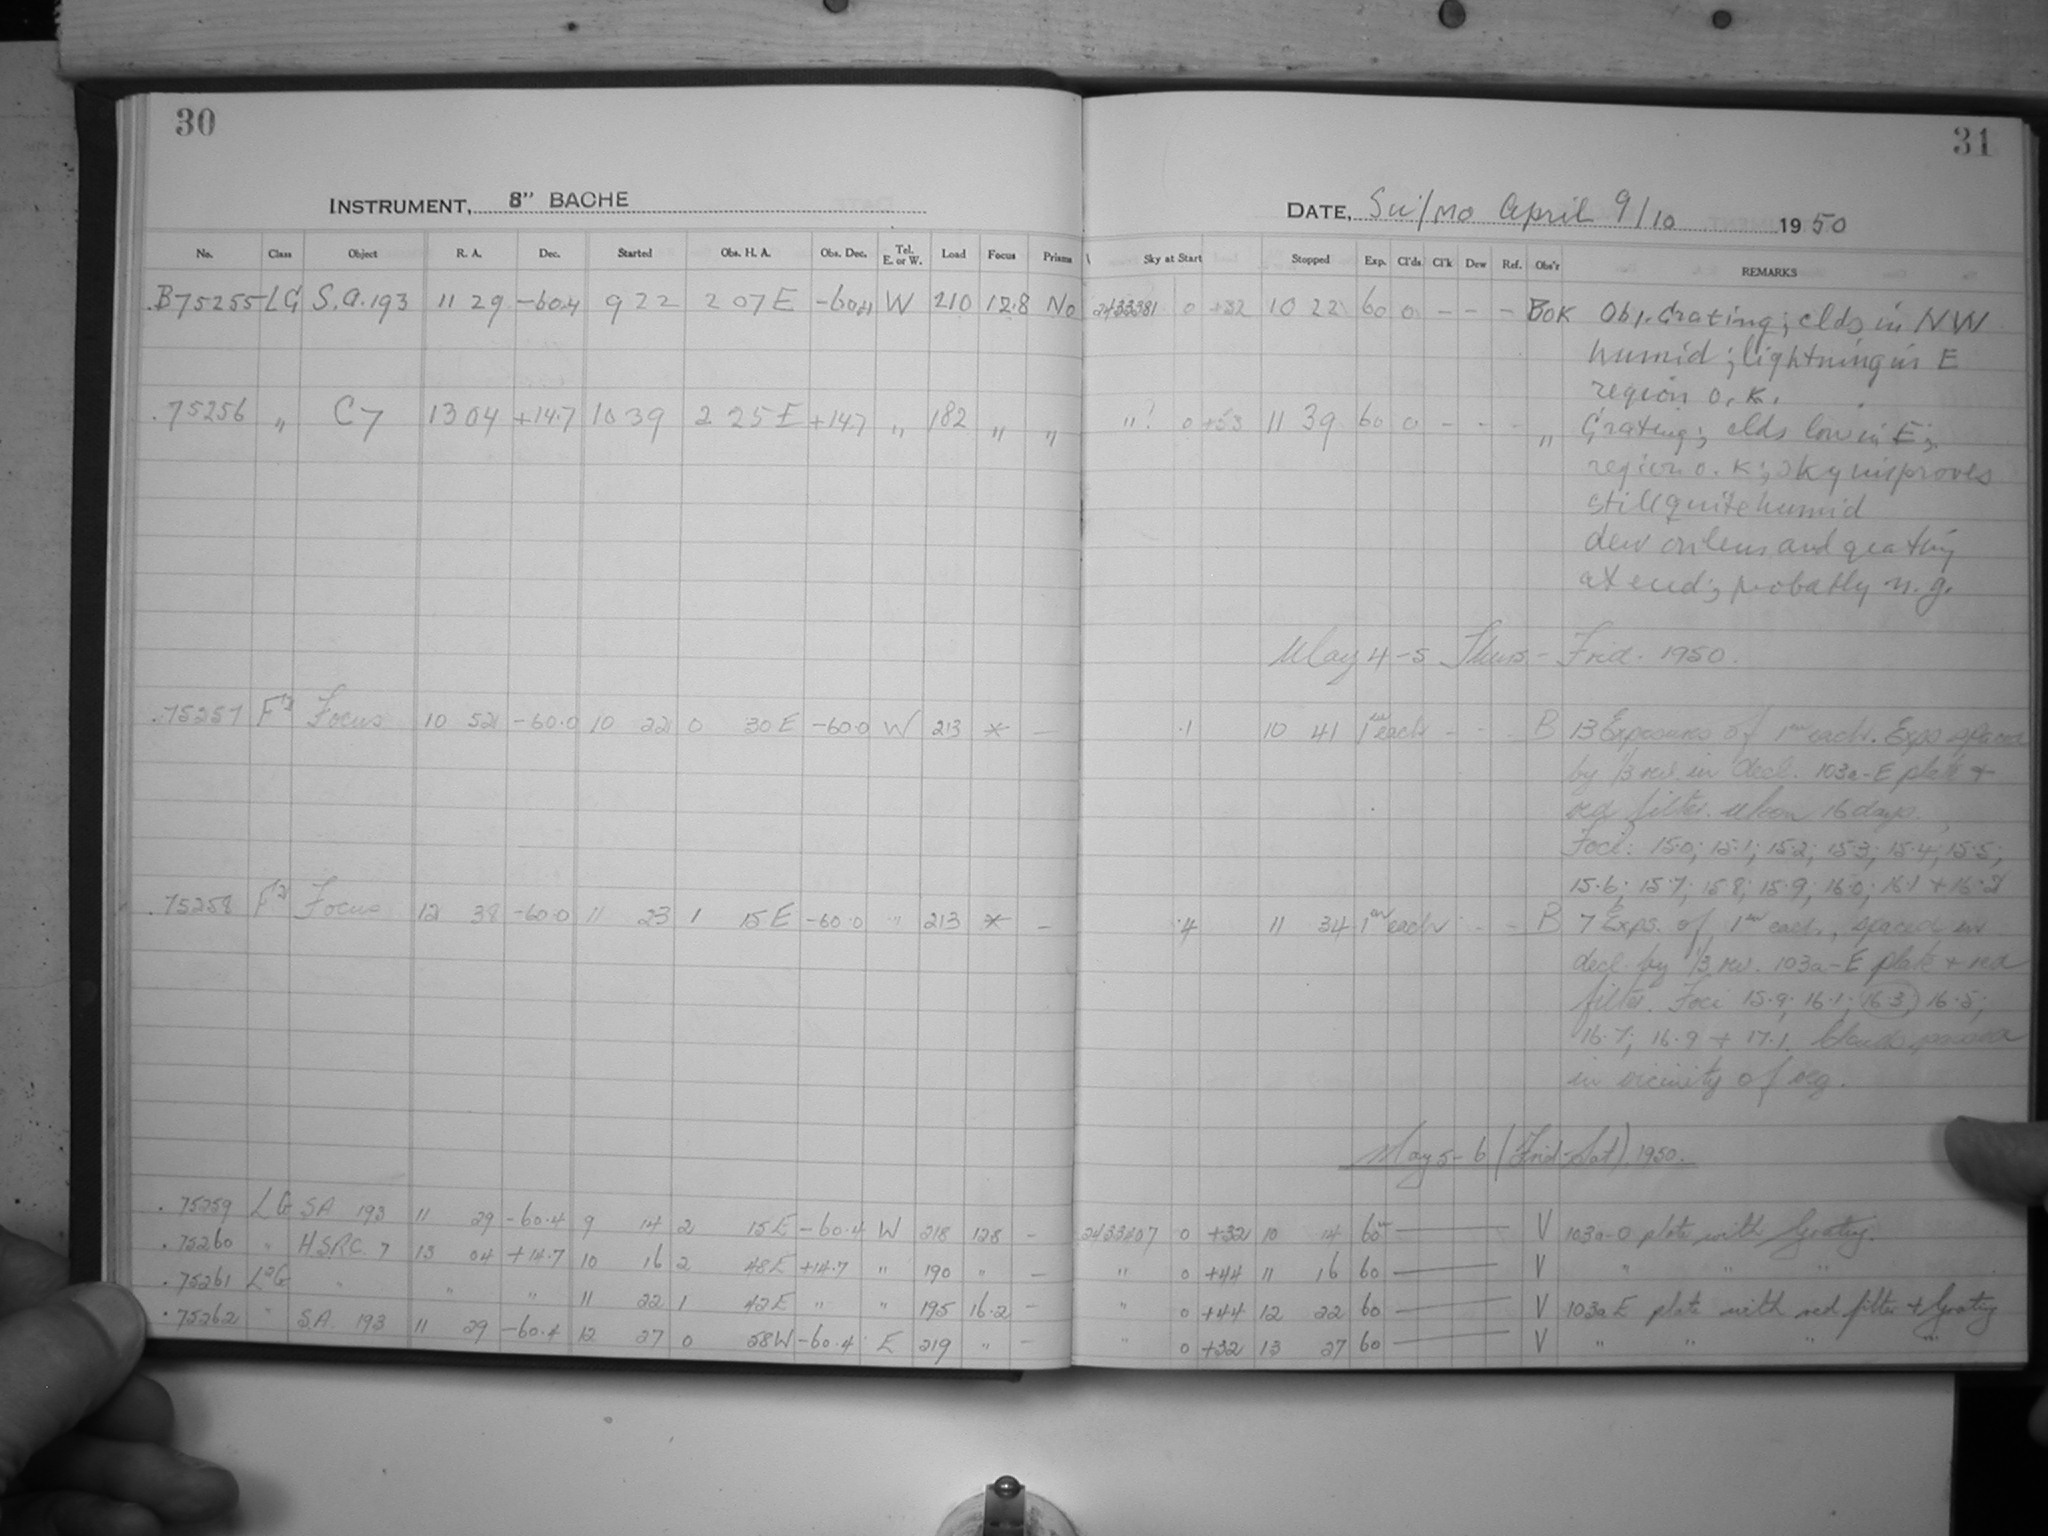 30
INSTRUMENT, 8" BACHE
No. Class Object R. A. Dec. Started Obs. H. A. Obs. Dec. Tel. E. or W. Load Focus Prisms
B75255 LG S.A. 193 11 29 -60.4 9 22 2 07 E -60.4 W 210 12.8 No
.75256 " C7 13 04 +14.7 10 39 2 25 E +14.7 " 182 " "
.75257 Focus 10 52 -60.0 10 22 0 30 E -60.0 W 213 * —
.75258 Focus 12 38 -60.0 11 23 1 15 E -60.0 " 213 * —
.75259 LG SA 193 11 29 -60.4 9 14 2 15 E -60.4 W 218 128 -
.75260 " HSRC. 7 13 04 +14.7 10 16 2 48 E +14.7 " 190 " —
.75261 L²G " " " 11 22 1 42 E " " 195 16.2 -
.75262 " SA. 193 11 29 -60.4 12 27 0 58 W -60.4 E 219 " -
31
DATE, Su/Mo April 9/10 1950
Sky at Start Stopped Exp. Cl'ds Cl'k Dew Ref. Obs'r REMARKS
2433381 0 +32 10 22 60 0 - - - BOK Obj. Grating; clds in NW
humid; lightning in E
region o.k.
"? 0 +53 11 39 60 0 - - - " Grating; clds low in E;
region o.k; sky improves
still quite humid
dew on lens and grating
at end; probably n.g.
May 4-5 Thurs - Frid. 1950.
.1 10 41 1m each - - - B 13 Exposures of 1m each. Exps spaced
by 1/3 rev. in decl. 103a-E plate +
red filter. Moon 16 days.
Foci: 15.0; 15.1; 15.2; 15.3; 15.4; 15.5;
15.6; 15.7; 15.8; 15.9; 16.0; 16.1 + 16.2
.4 11 34 1m each - - B 7 Exps. of 1m each, spaced in
decl. by 1/3 rev. 103a-E plate + red
filter. Foci 15.9; 16.1; 16.3; 16.5;
16.7; 16.9 + 17.1. Clouds passed
in vicinity of reg.
May 5-6 (Frid-Sat). 1950.
2433407 0 +32 10 14 60m — V 103a-O plate with Grating.
" 0 +44 11 16 60 — V " " "
" 0 +44 12 22 60 — V 103aE plate with red filter + Grating
" 0 +32 13 27 60 — V " " " "